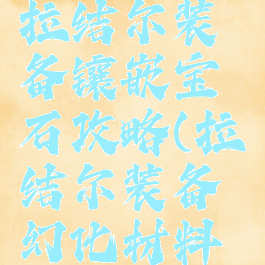 拉结尔装
备镶嵌宝
石攻略(拉
结尔装备
幻化材料